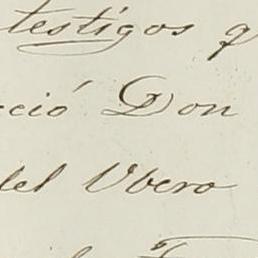 testigos q
ció Don
del Ubero